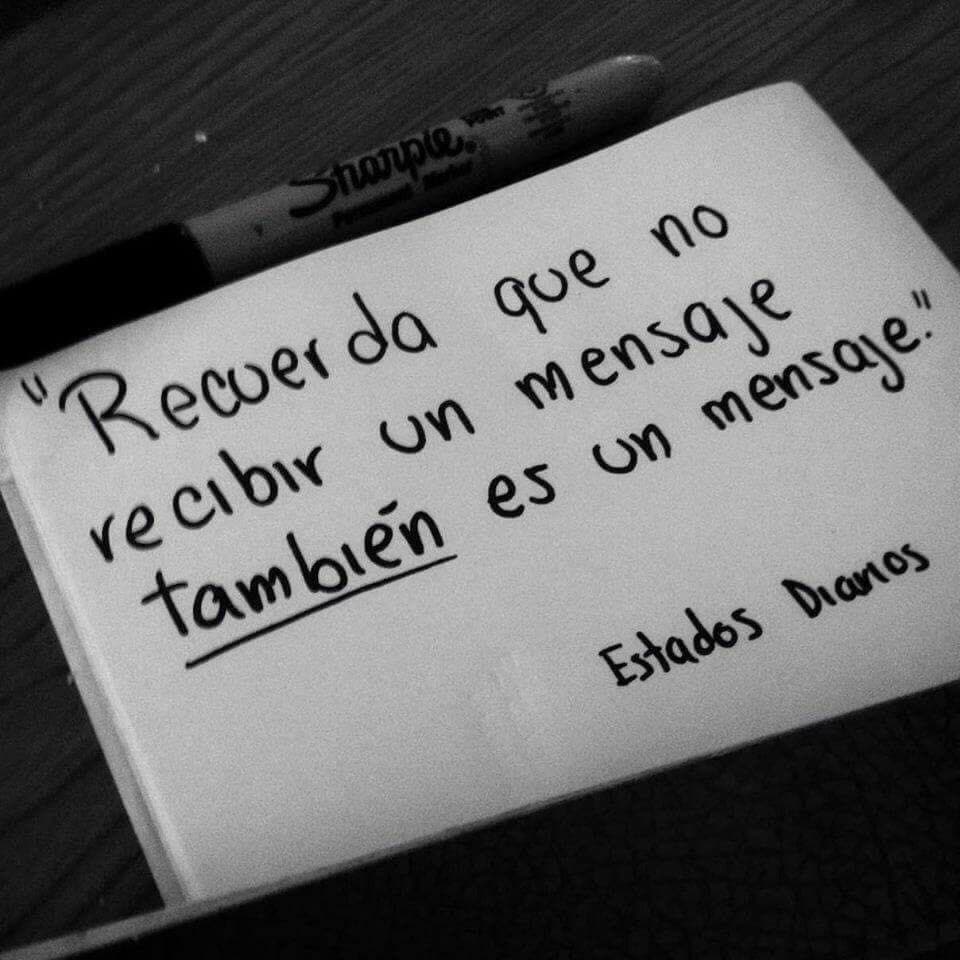 Sharpie.
Permanent Marker
"Recuerda que no
recibir un mensaje
también es un mensaje."
Estados Diarios